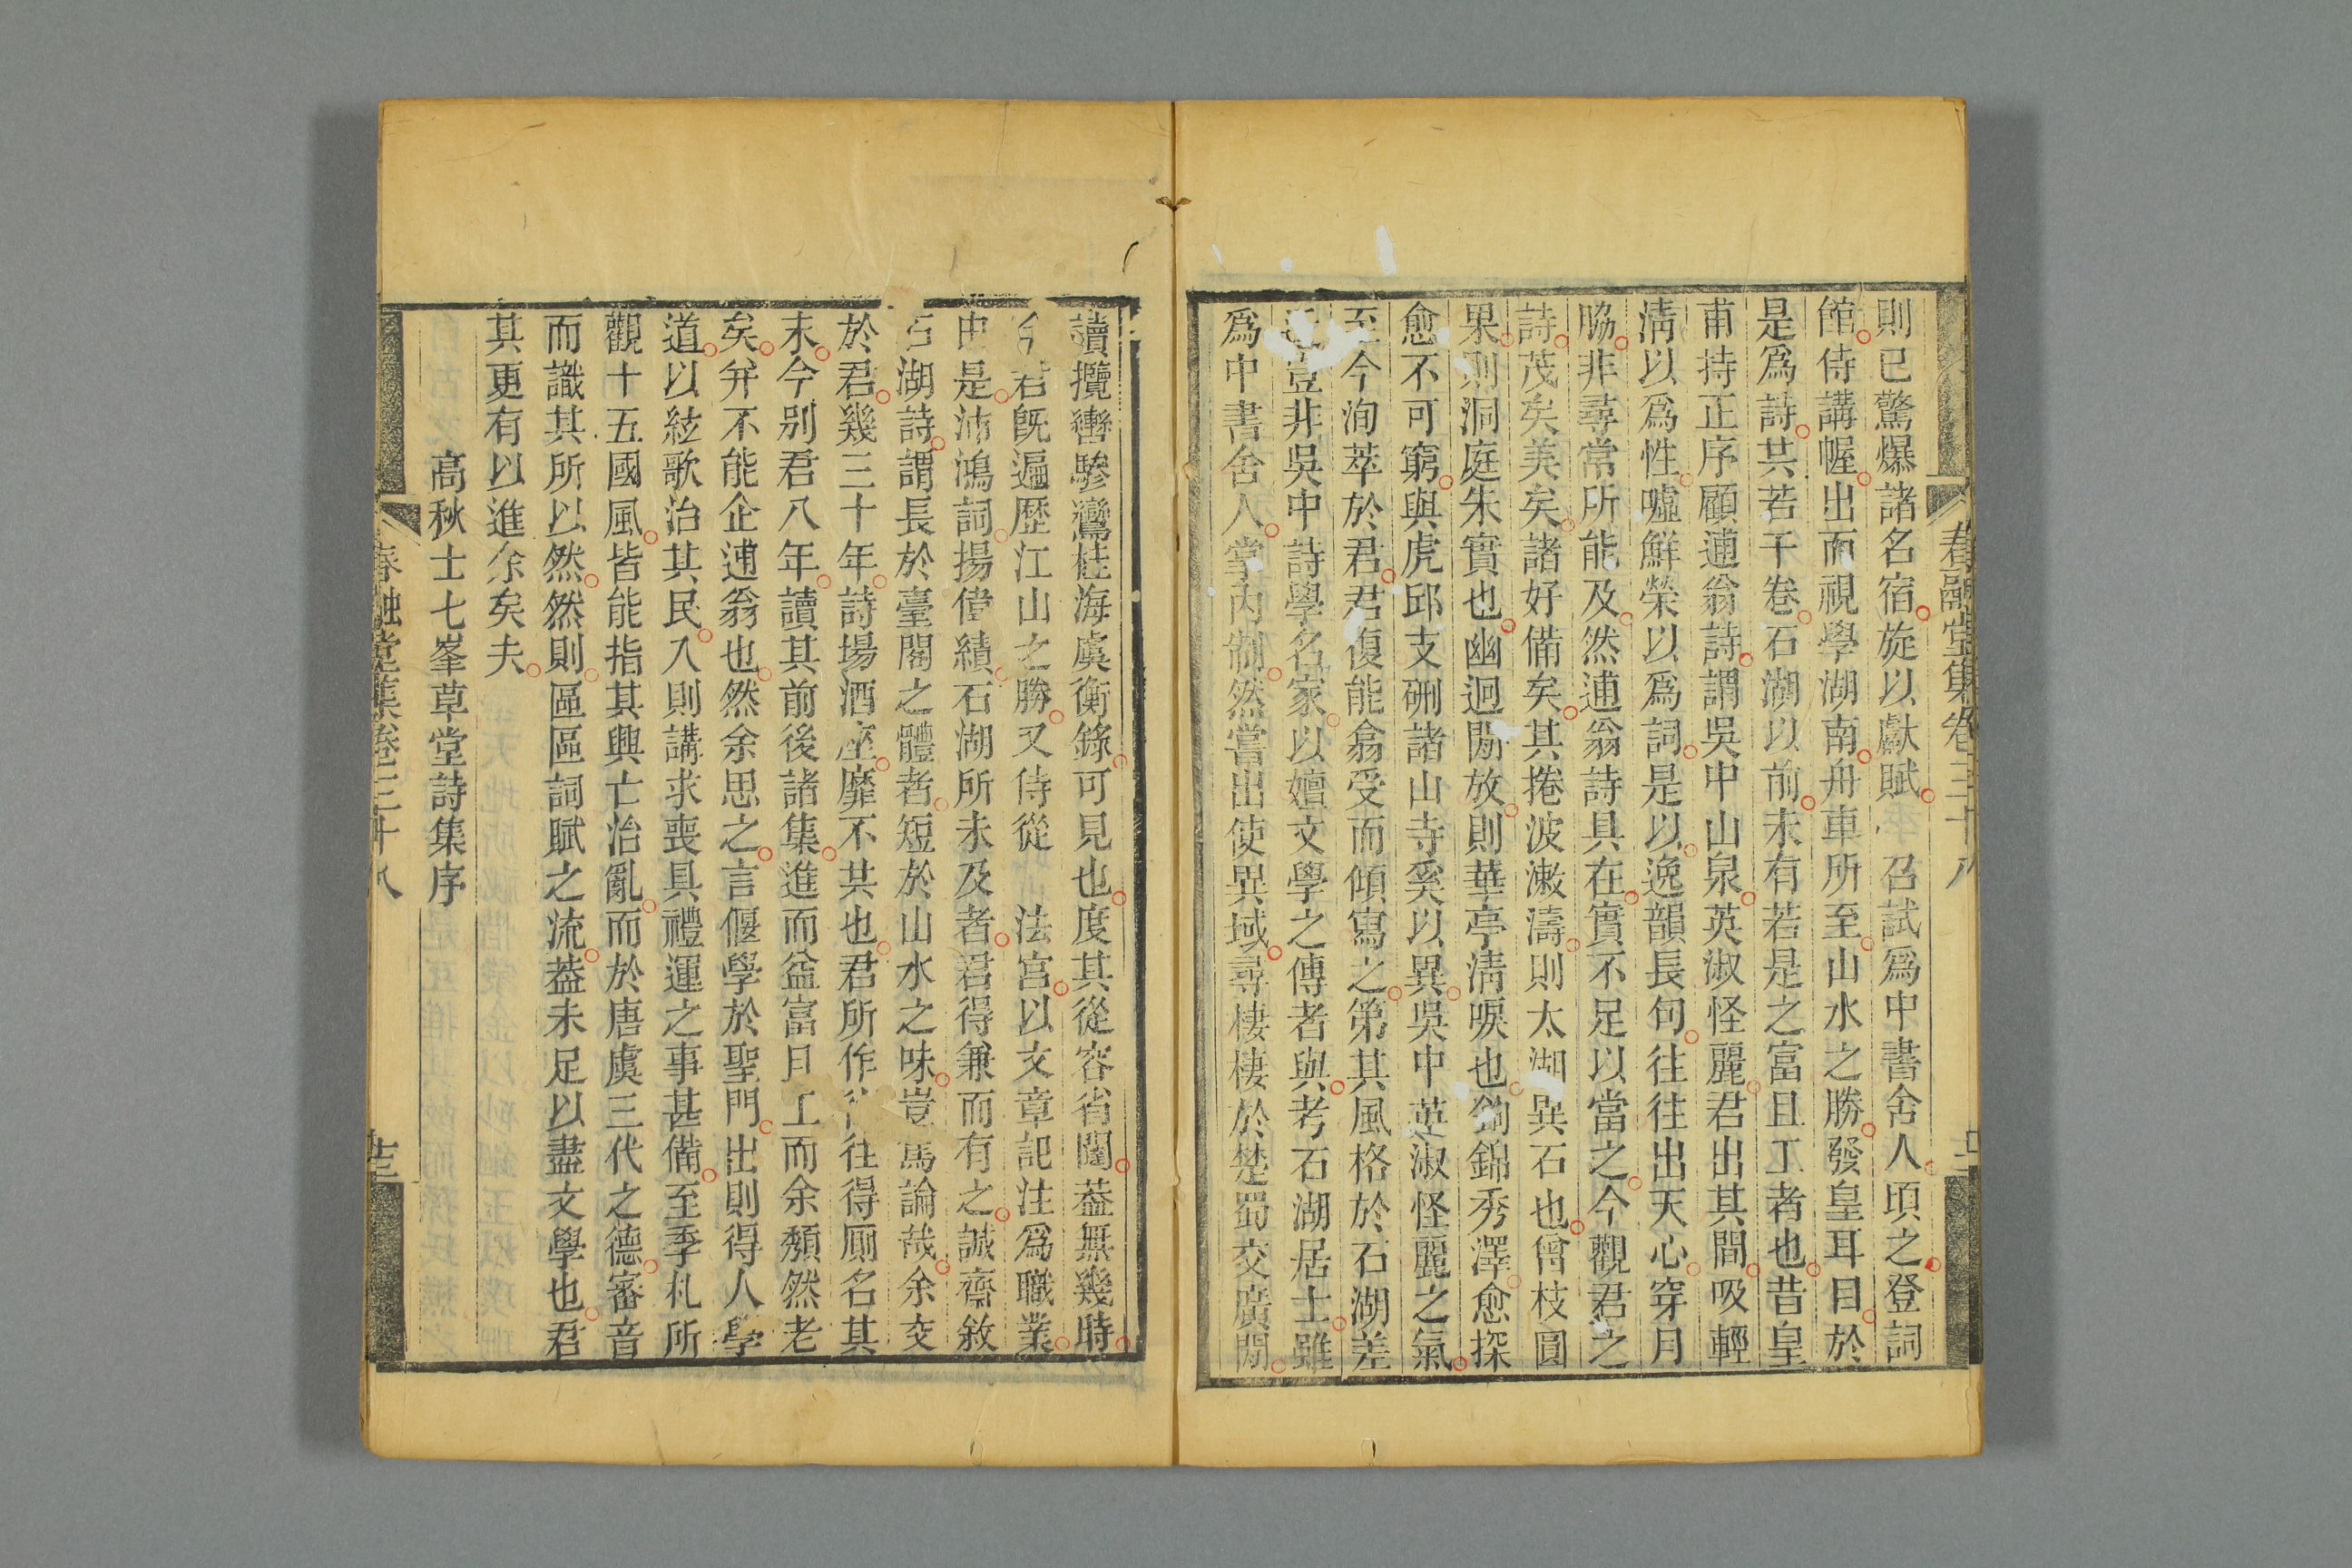 春融堂集卷三十八
則已驚爆諸名宿旋以獻賦 召試爲中書舍人頃之登詞
館侍講幄出而視學湖南舟車所至山水之勝發皇耳目於
是爲詩共若干卷石湖以前未有若是之富且工者也昔皇
甫持正序顧逋翁詩謂吳中山泉英淑怪麗君出其間吸輕
淸以爲性噓鮮榮以爲詞是以逸韻長句往往出天心穿月
脇非尋常所能及然逋翁詩具在實不足以當之今觀君之
詩茂矣美矣諸好備矣其捲波潄濤則太湖異石也曾枝圓
果則洞庭朱實也幽迥閒放則華亭淸唳也絢錦秀澤愈探
愈不可窮與虎邱支硎諸山寺奚以異吳中英淑怪麗之氣
至今洵萃於君君復能翕受而傾寫之第其風格於石湖差
豈非吳中詩學名家以嬗文學之傳者與考石湖居士雖
爲中書舍人掌內制然嘗出使異域尋棲棲於楚蜀交廣閒
讀攬轡驂鸞桂海虞衡錄可見也度其從容省闥葢無幾時
君旣遍歷江山之勝又侍從 法宮以文章記注爲職業
由是沛鴻詞揚偉績石湖所未及者君得兼而有之誠齋敘
石湖詩謂長於臺閣之體者短於山水之味豈篤論哉余交
於君幾三十年詩場酒座靡不共也君所作往往得厠名其
末今別君八年讀其前後諸集進而益富且工而余頽然老
矣并不能企逋翁也然余思之言偃學於聖門出則得人學
道以絃歌治其民入則講求喪具禮運之事甚備至季札所
觀十五國風皆能指其興亡治亂而於唐虞三代之德審音
而識其所以然然則區區詞賦之流葢未足以盡文學也君
其更有以進余矣夫
高秋士七峯草堂詩集序
春融堂集卷三十八